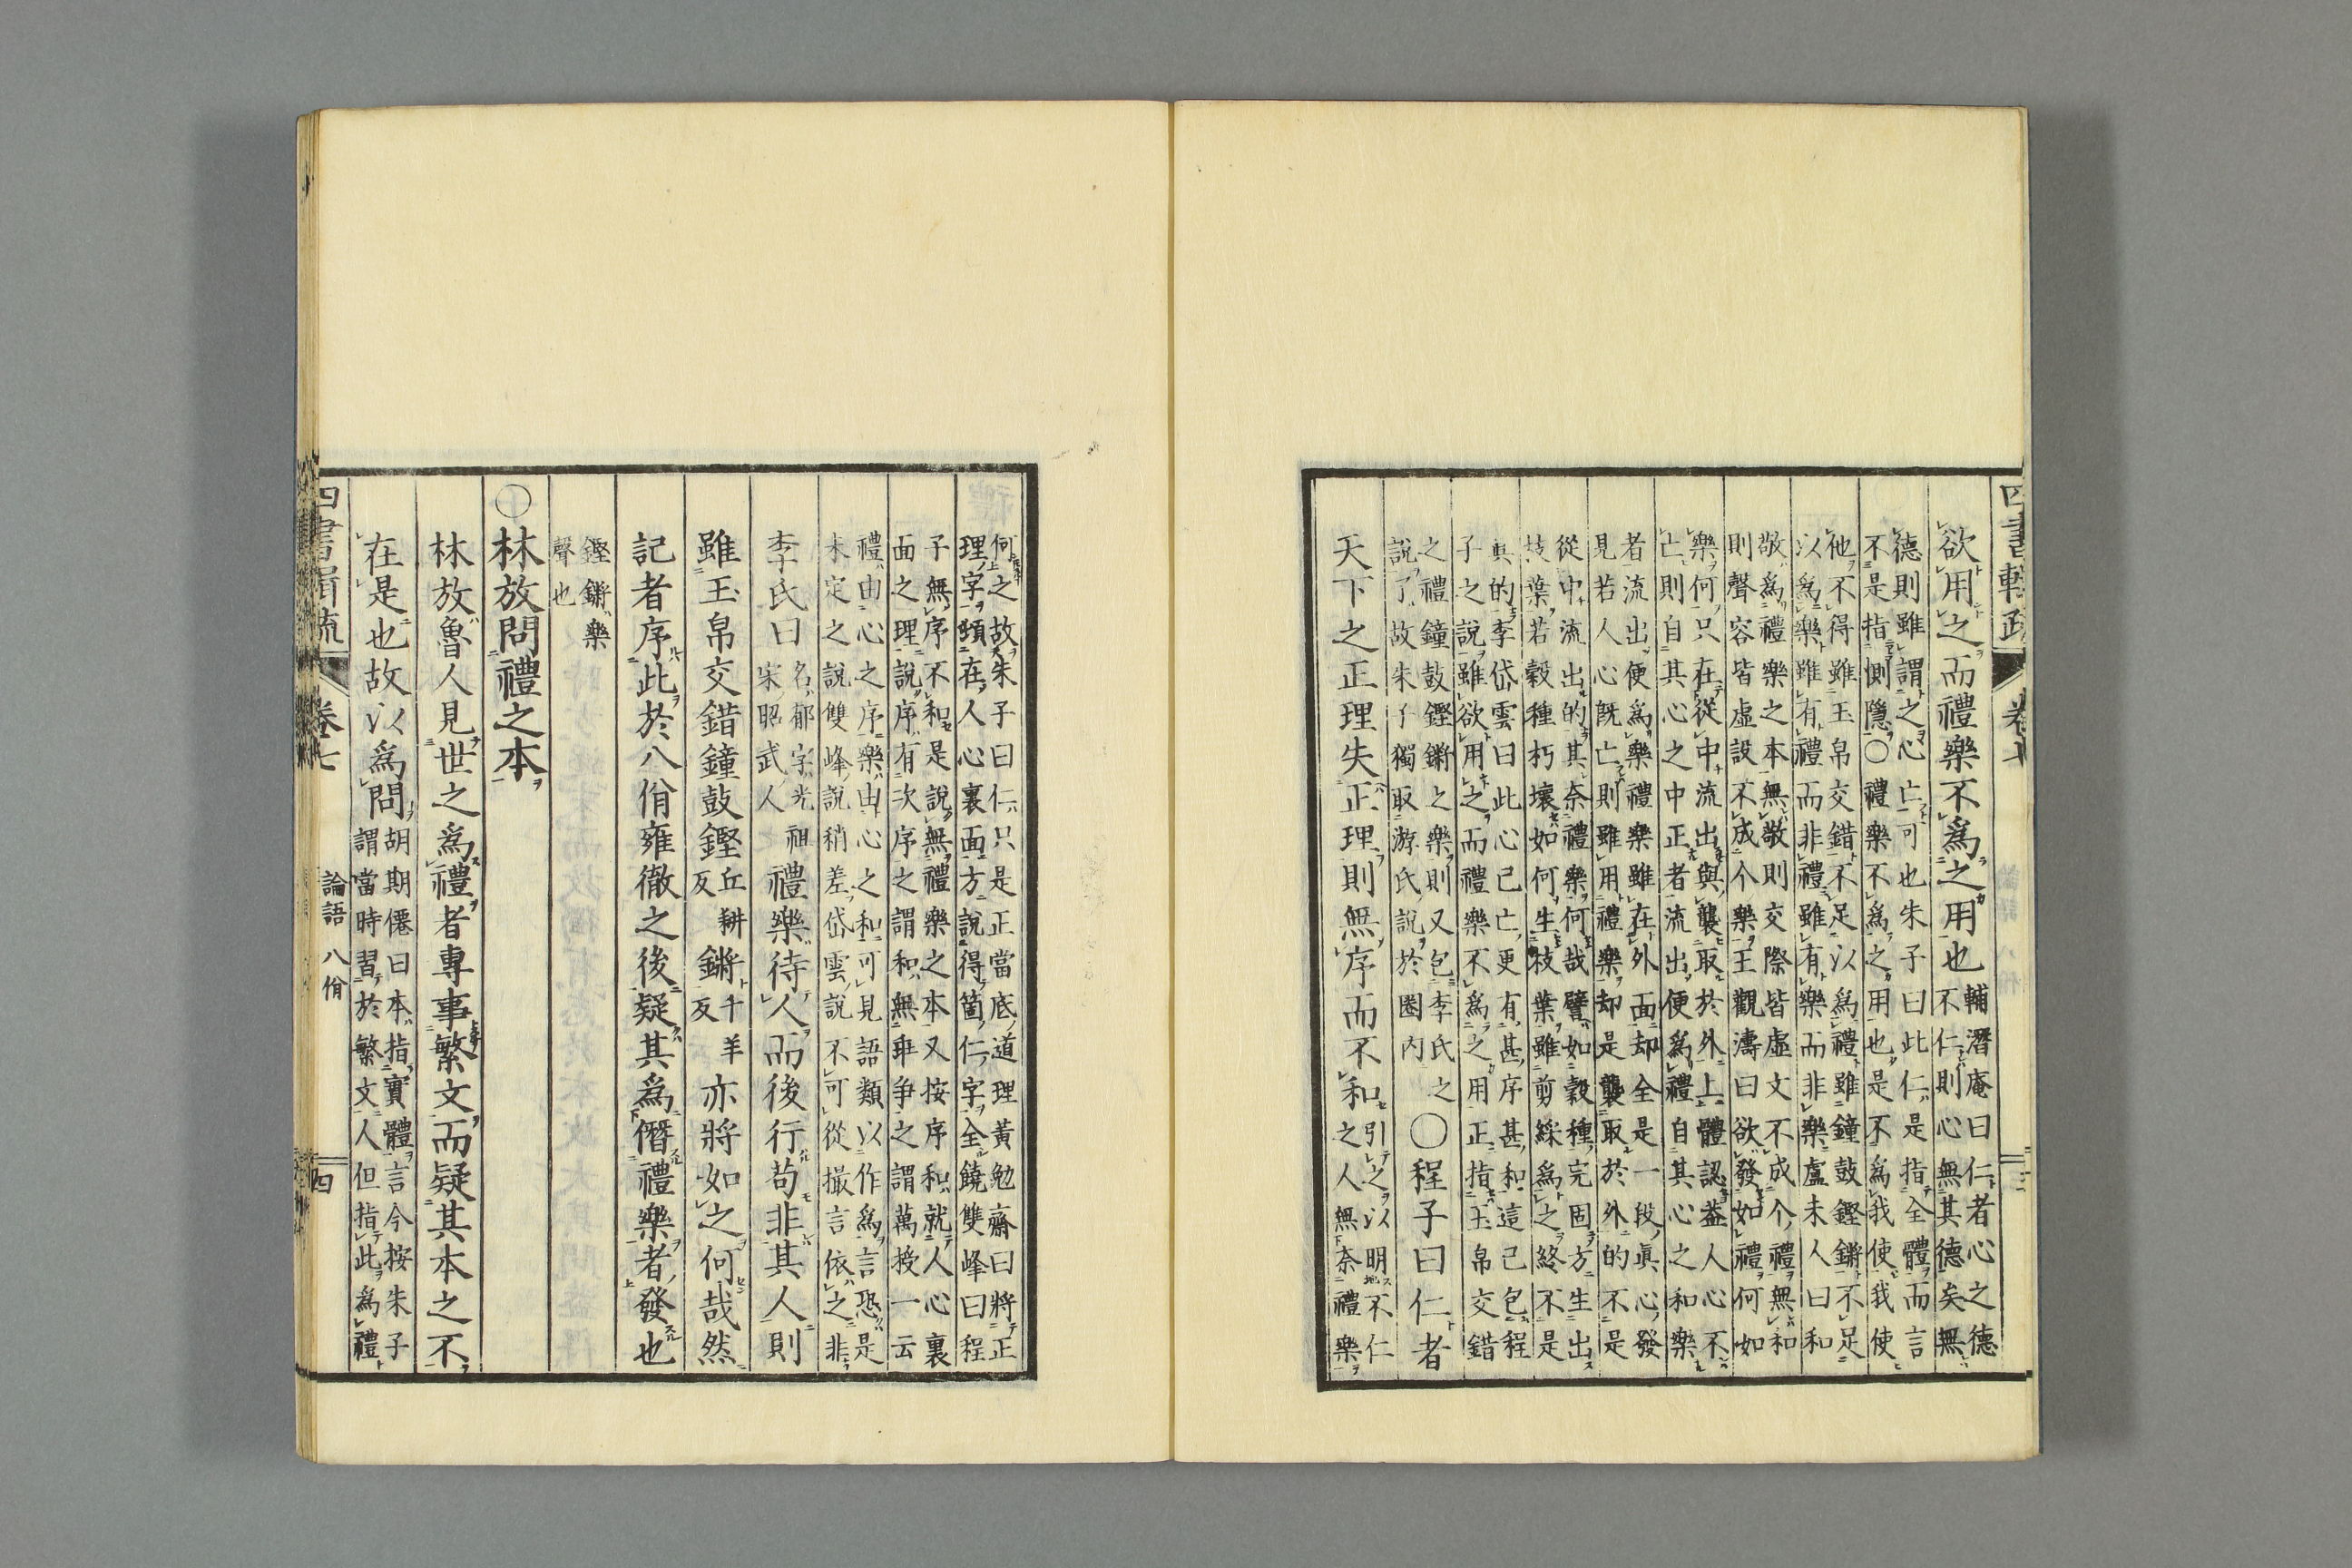 欲用之而禮樂不爲之用也輔潛庵曰仁者心之德
不仁則心無其德矣無
德則雖謂之心亡可也朱子曰此仁是指全體而言
不是指惻隱〇禮樂不爲之用也是不爲我使我使
他不得雖玉帛交錯不足以爲禮雖鐘鼓鏗鏘不足
以爲樂雖有禮而非禮雖有樂而非樂盧未人曰和
敬爲禮樂之本無敬則交際皆虛文不成个禮無和
則聲容皆虛設不成个樂王觀濤曰欲發如禮何如
樂何只在從中流出與襲取於外上體認益人心不
亡則自其心之中正者流出便爲禮自其心之和樂
者流出便爲樂禮樂雖在外面却全是一段眞心發
見若人心旣亡則雖用禮樂却是襲取於外的不是
從中流出的其奈禮樂何哉譬如穀種完固方生出
枝葉若穀種朽壞如何生枝葉雖剪綵爲之終不是
眞的李岱雲曰此心已亡更有甚序甚和這已包程
子之說雖欲用之而禮樂不爲之用正指玉帛交錯
之禮鐘鼓鏗鏘之樂則又包李氏之
說了故朱子獨取游氏說於圈内
〇程子曰仁者
天下之正理失正理則無序而不和引之以明不仁
之人無奈禮樂
四書輯疏 卷七
何之故朱子曰仁只是正當底道理黃勉齋曰將正
理字頓在人心裏面方說得箇仁字全饒雙峰曰程
子無序不和是說無禮樂之本又按序和就人心裏
面之理說序有次序之謂和無乖爭之謂萬授一云
禮由心之序樂由心之和可見語類以作爲言恐是
未定之說雙峰說稍差岱雲說不可從撮言依之非
李氏曰名郁字光祖
宋昭武人
禮樂待人而後行苟非其人則
雖玉帛交錯鐘鼓鏗丘耕反鏘千羊反亦將如之何哉然
記者序此於八佾雍徹之後疑其爲僭禮樂者發也
鏗鏘樂
聲也
〇林放問禮之本
林放魯人見世之爲禮者專事繁文而疑其本之不
在是也故以爲問胡期僊曰本指實體言今按朱子
謂當時習於繁文人但指此爲禮
四書輯疏 卷七 論語 八佾 四